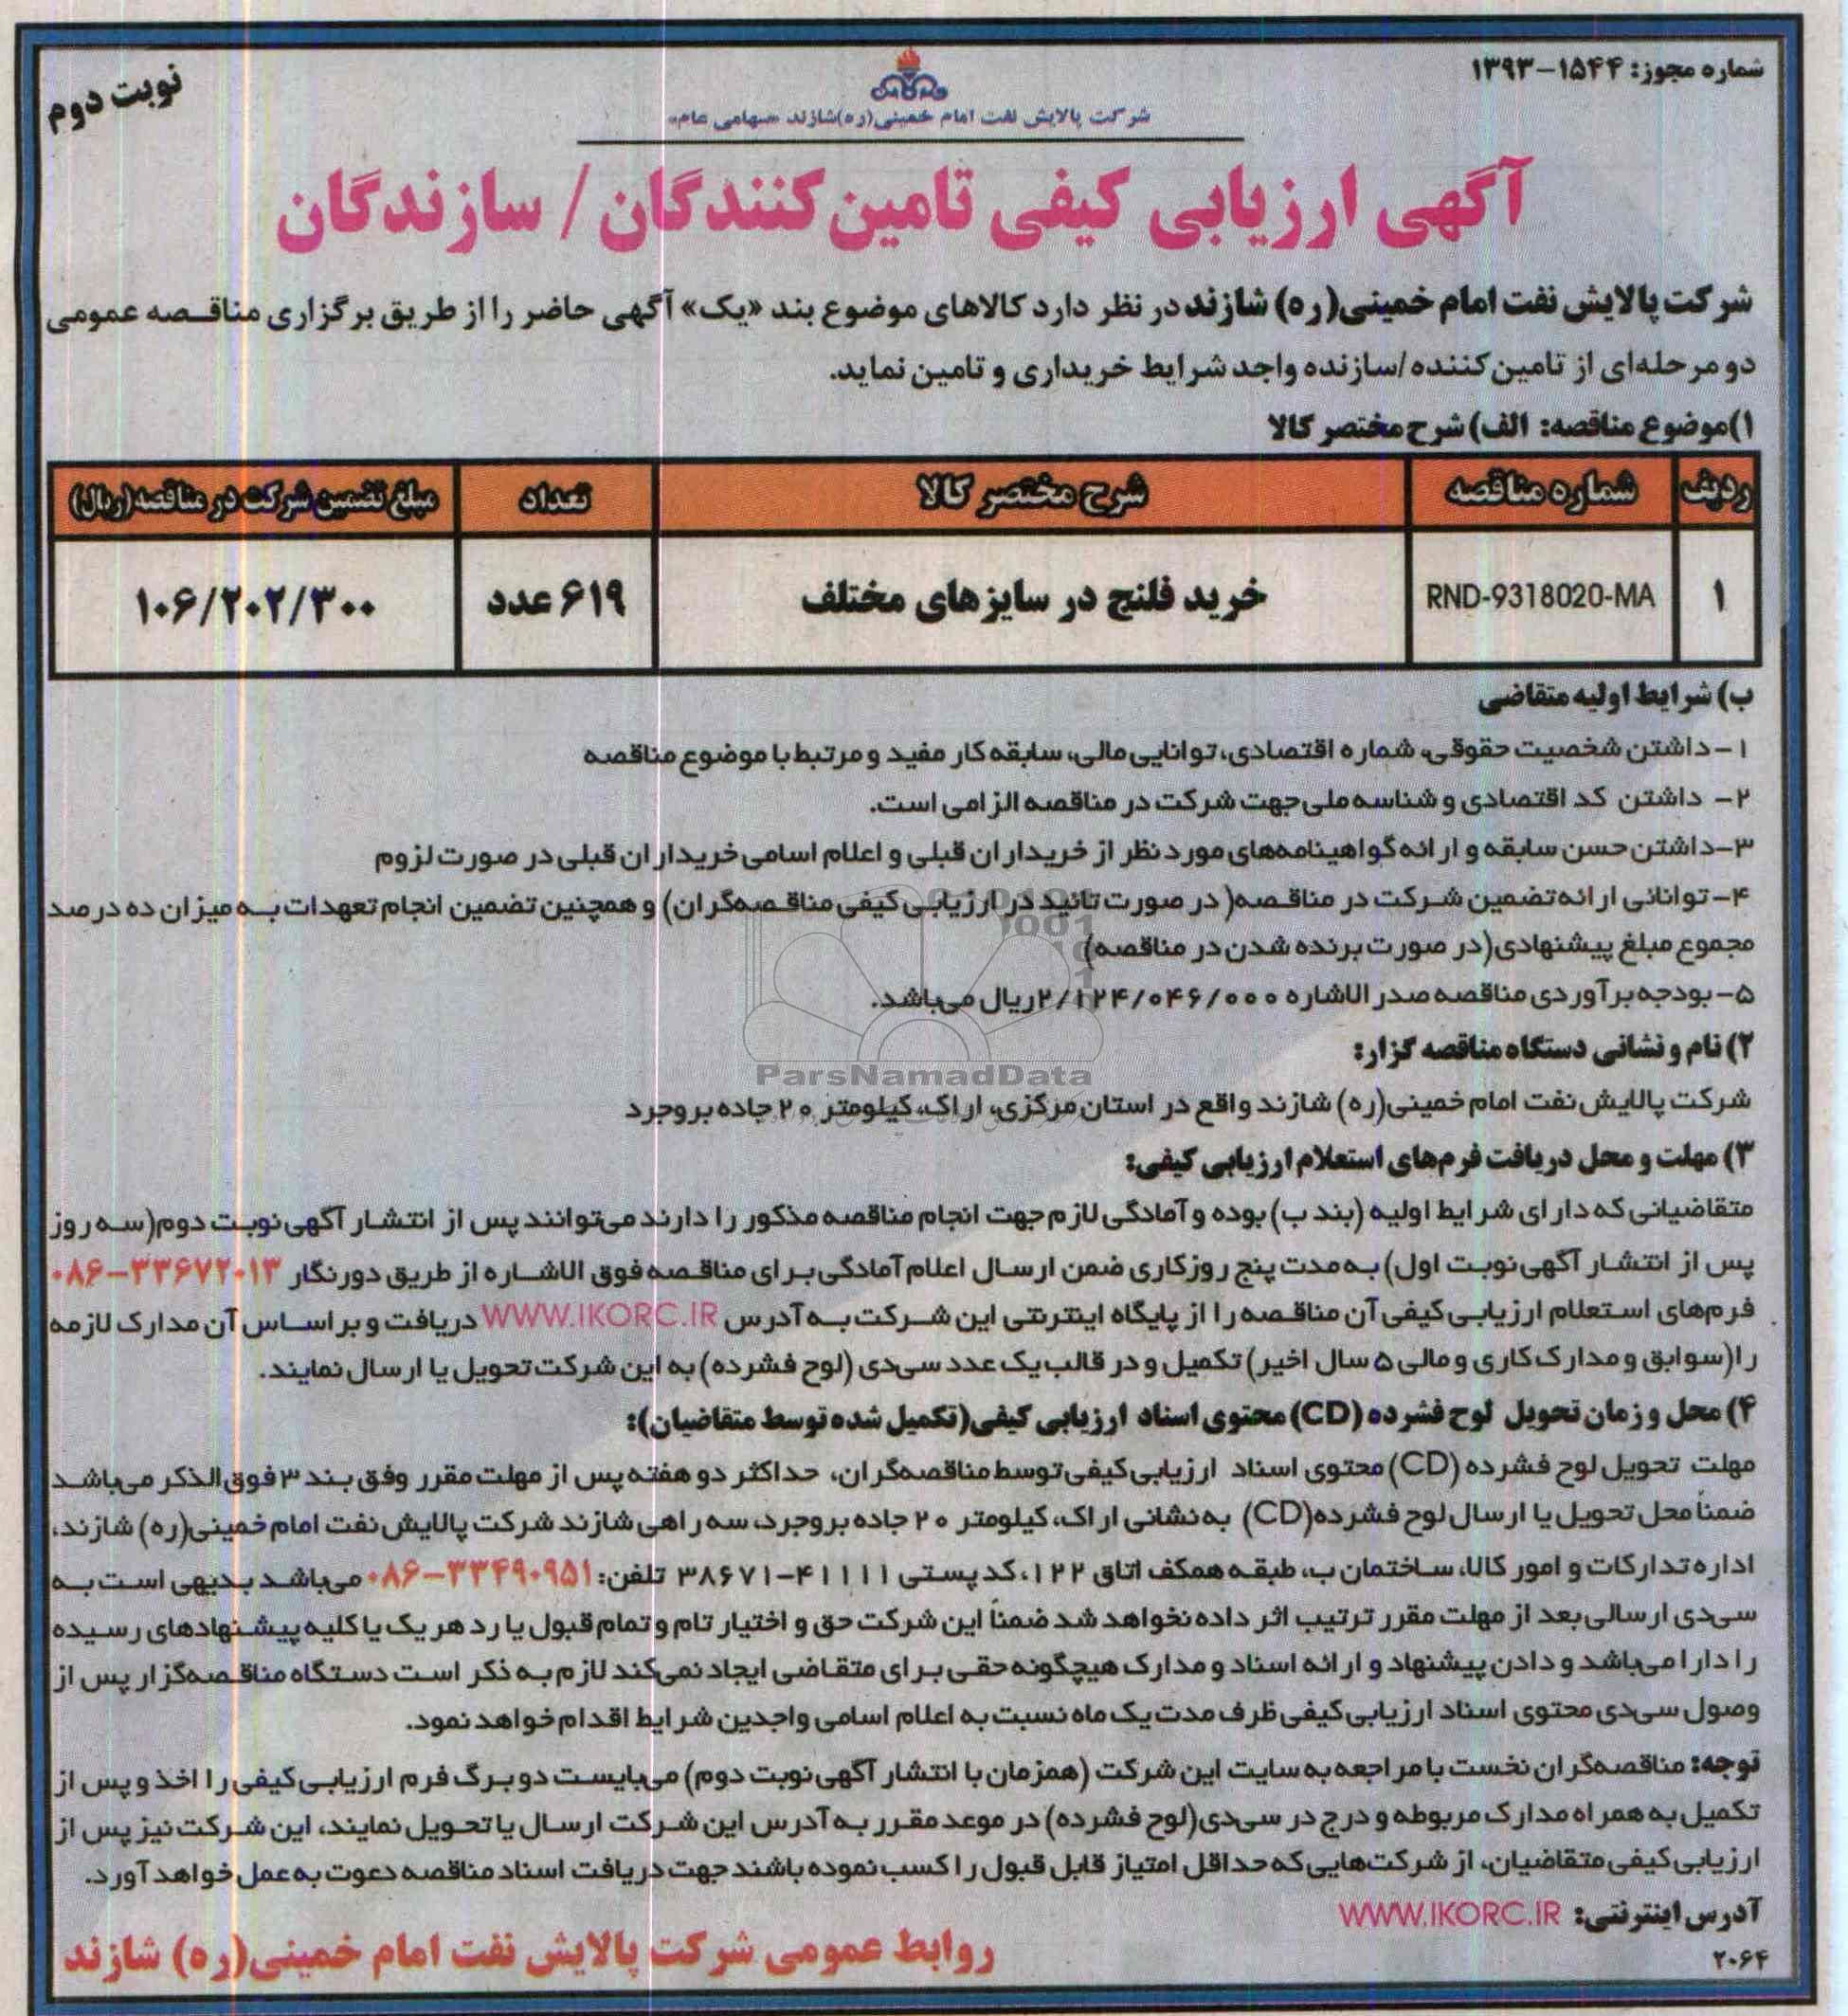 شماره مجوز: ۱۵۴۴-۱۳۹۳
نوبت دوم
شرکت پالایش نفت امام خمینی(ره)شازند «سهامی عام»
آگهی ارزیابی کیفی تامین کنندگان / سازندگان
شرکت پالایش نفت امام خمینی(ره) شازند در نظر دارد کالاهای موضوع بند «یک» آگهی حاضر را از طریق برگزاری مناقصه عمومی
دو مرحله‌ای از تامین کننده /سازنده واجد شرایط خریداری و تامین نماید.
۱)موضوع مناقصه: الف) شرح مختصر کالا
ردیف شماره مناقصه شرح مختصر کالا تعداد مبلغ تضمین شرکت در مناقصه(ریال)
۱ RND-9318020-MA خرید فلنج در سایزهای مختلف ۶۱۹ عدد ۱۰۶/۲۰۲/۳۰۰
ب) شرایط اولیه متقاضی
۱-داشتن شخصیت حقوقی، شماره اقتصادی، توانایی مالی، سابقه کار مفید و مرتبط با موضوع مناقصه
۲- داشتن کد اقتصادی و شناسه ملی جهت شرکت در مناقصه الزامی است.
۳-داشتن حسن سابقه و ارائه گواهینامه‌های مورد نظر از خریداران قبلی و اعلام اسامی خریداران قبلی در صورت لزوم
۴- توانائی ارائه تضمین شرکت در مناقصه( در صورت تائید در ارزیابی کیفی مناقصه‌گران) و همچنین تضمین انجام تعهدات به میزان ده درصد
مجموع مبلغ پیشنهادی(در صورت برنده شدن در مناقصه)
۵- بودجه برآوردی مناقصه صدر الاشاره ۲/۱۲۴/۰۴۶/۰۰۰ریال می‌باشد.
۲) نام و نشانی دستگاه مناقصه گزار:
ParsNamadData
شرکت پالایش نفت امام خمینی(ره) شازند واقع در استان مرکزی، اراک، کیلومتر ۲۰ جاده بروجرد
۳) مهلت و محل دریافت فرم‌های استعلام ارزیابی کیفی:
متقاضیانی که دارای شرایط اولیه (بند ب) بوده و آمادگی لازم جهت انجام مناقصه مذکور را دارند می‌توانند پس از انتشار آگهی نوبت دوم(سه روز
پس از انتشار آگهی نوبت اول) به مدت پنج روزکاری ضمن ارسال اعلام آمادگی برای مناقصه فوق الاشاره از طریق دورنگار ۳۳۶۷۲۰۱۳-۰۸۶
فرم‌های استعلام ارزیابی کیفی آن مناقصه را از پایگاه اینترنتی این شرکت به آدرس WWW.IKORC.IR دریافت و بر اساس آن مدارک لازمه
را(سوابق و مدارک کاری و مالی ۵ سال اخیر) تکمیل و در قالب یک عدد سی‌دی (لوح فشرده) به این شرکت تحویل یا ارسال نمایند.
۴) محل و زمان تحویل لوح فشرده (CD) محتوی اسناد ارزیابی کیفی(تکمیل شده توسط متقاضیان):
مهلت تحویل لوح فشرده (CD) محتوی اسناد ارزیابی کیفی توسط مناقصه‌گران، حداکثر دو هفته پس از مهلت مقرر وفق بند ۳ فوق الذکر می‌باشد
ضمناً محل تحویل یا ارسال لوح فشرده(CD) به نشانی اراک، کیلومتر ۲۰ جاده بروجرد، سه راهی شازند شرکت پالایش نفت امام خمینی(ره) شازند،
اداره تدارکات و امور کالا، ساختمان ب، طبقه همکف اتاق ۱۲۲، کد پستی ۴۱۱۱۱-۳۸۶۷۱ تلفن: ۳۳۴۹۰۹۵۱-۰۸۶ می‌باشد بدیهی است به
سی‌دی ارسالی بعد از مهلت مقرر ترتیب اثر داده نخواهد شد ضمناً این شرکت حق و اختیار تام و تمام قبول یا رد هر یک یا کلیه پیشنهادهای رسیده
را دارا می‌باشد و دادن پیشنهاد و ارائه اسناد و مدارک هیچگونه حقی برای متقاضی ایجاد نمی‌کند لازم به ذکر است دستگاه مناقصه‌گزار پس از
وصول سی‌دی محتوی اسناد ارزیابی کیفی ظرف مدت یک ماه نسبت به اعلام اسامی واجدین شرایط اقدام خواهد نمود.
توجه: مناقصه‌گران نخست با مراجعه به سایت این شرکت (همزمان با انتشار آگهی نوبت دوم) می‌بایست دو برگ فرم ارزیابی کیفی را اخذ و پس از
تکمیل به همراه مدارک مربوطه و درج در سی‌دی(لوح فشرده) در موعد مقرر به آدرس این شرکت ارسال یا تحویل نمایند، این شرکت نیز پس از
ارزیابی کیفی متقاضیان، از شرکت‌هایی که حداقل امتیاز قابل قبول را کسب نموده باشند جهت دریافت اسناد مناقصه دعوت به عمل خواهد آورد.
آدرس اینترنتی: WWW.IKORC.IR
روابط عمومی شرکت پالایش نفت امام خمینی(ره) شازند
۲۰۶۴